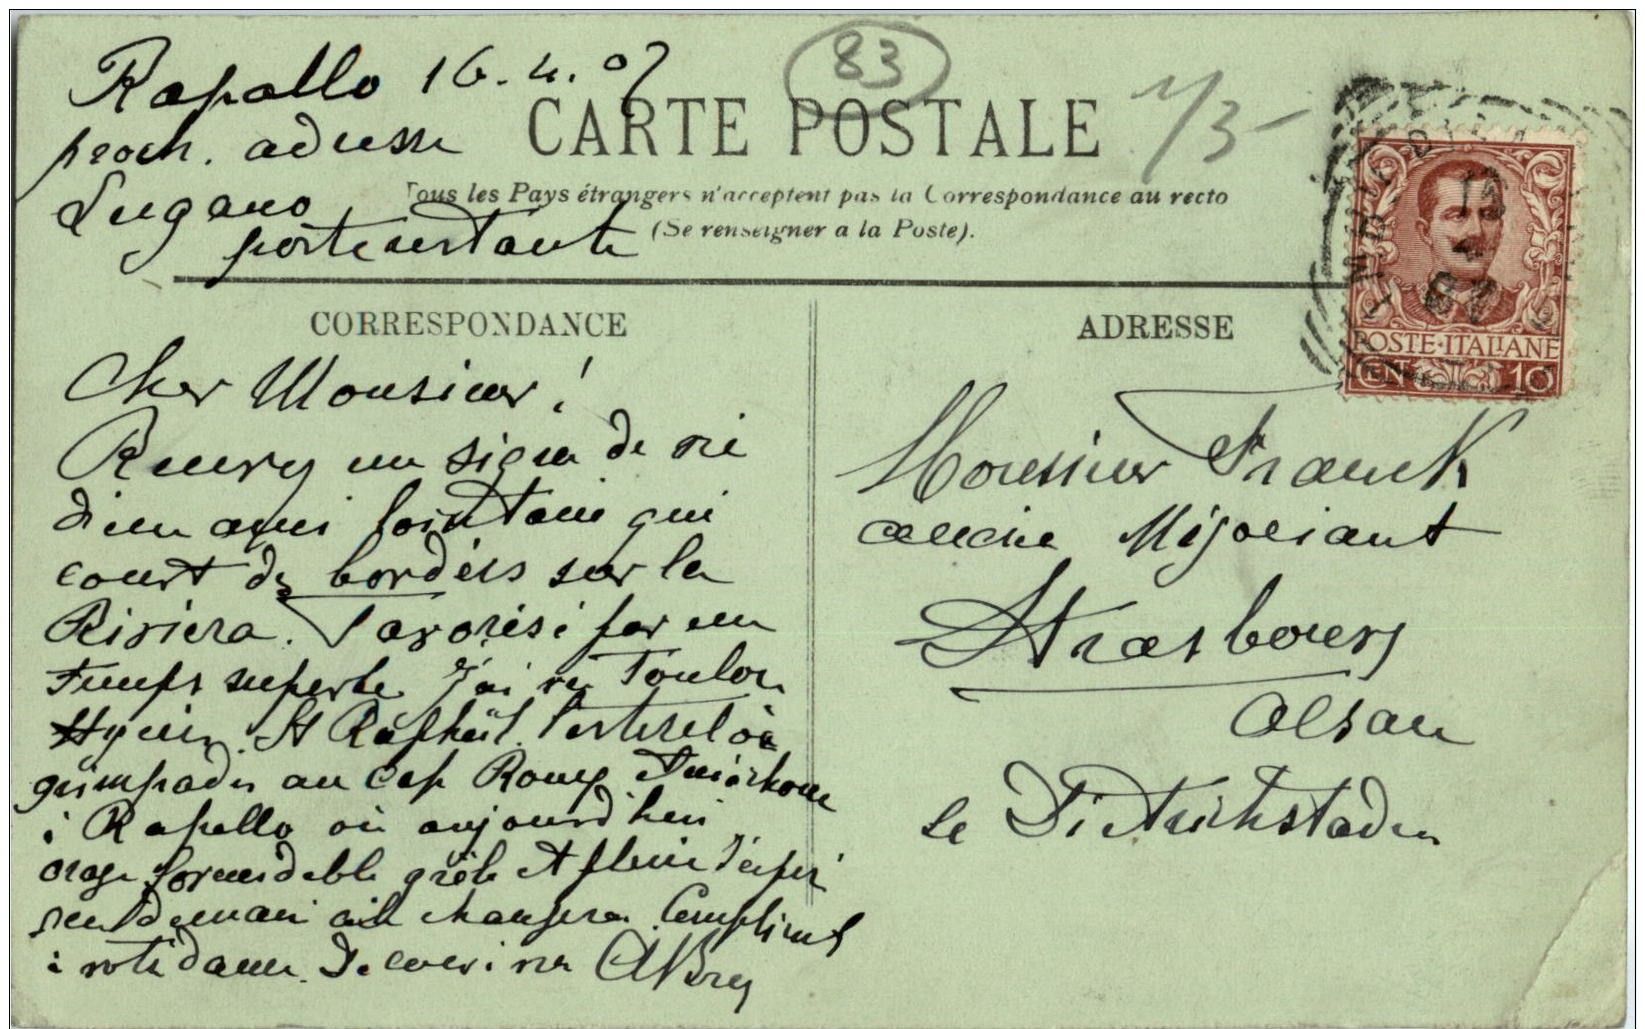 Rapallo 16.4.07
proch. adresse
Lugano
poste restante
83
1/3-
CARTE POSTALE
Tous les Pays étrangers n'acceptent pas la Correspondance au recto
(Se renseigner a la Poste).
CORRESPONDANCE
Cher Monsieur!
Recevez un signe de vie
d'un ami lointain qui
court des bordées sur la
Riviera. Favorisé par un
temps superbe j'ai vu Toulon
Hyères St Raphaël l'Esterel où
grimpades au Cap Roux
à Rapallo où aujourd'hui
orage formidable grèle et pluie
demain changera Compliments
à votre dame
ADRESSE
POSTE·ITALIANE
CEN 10
Monsieur Franck
ancien Négociant
Strasbourg
Alsace
le Dietrichstaden